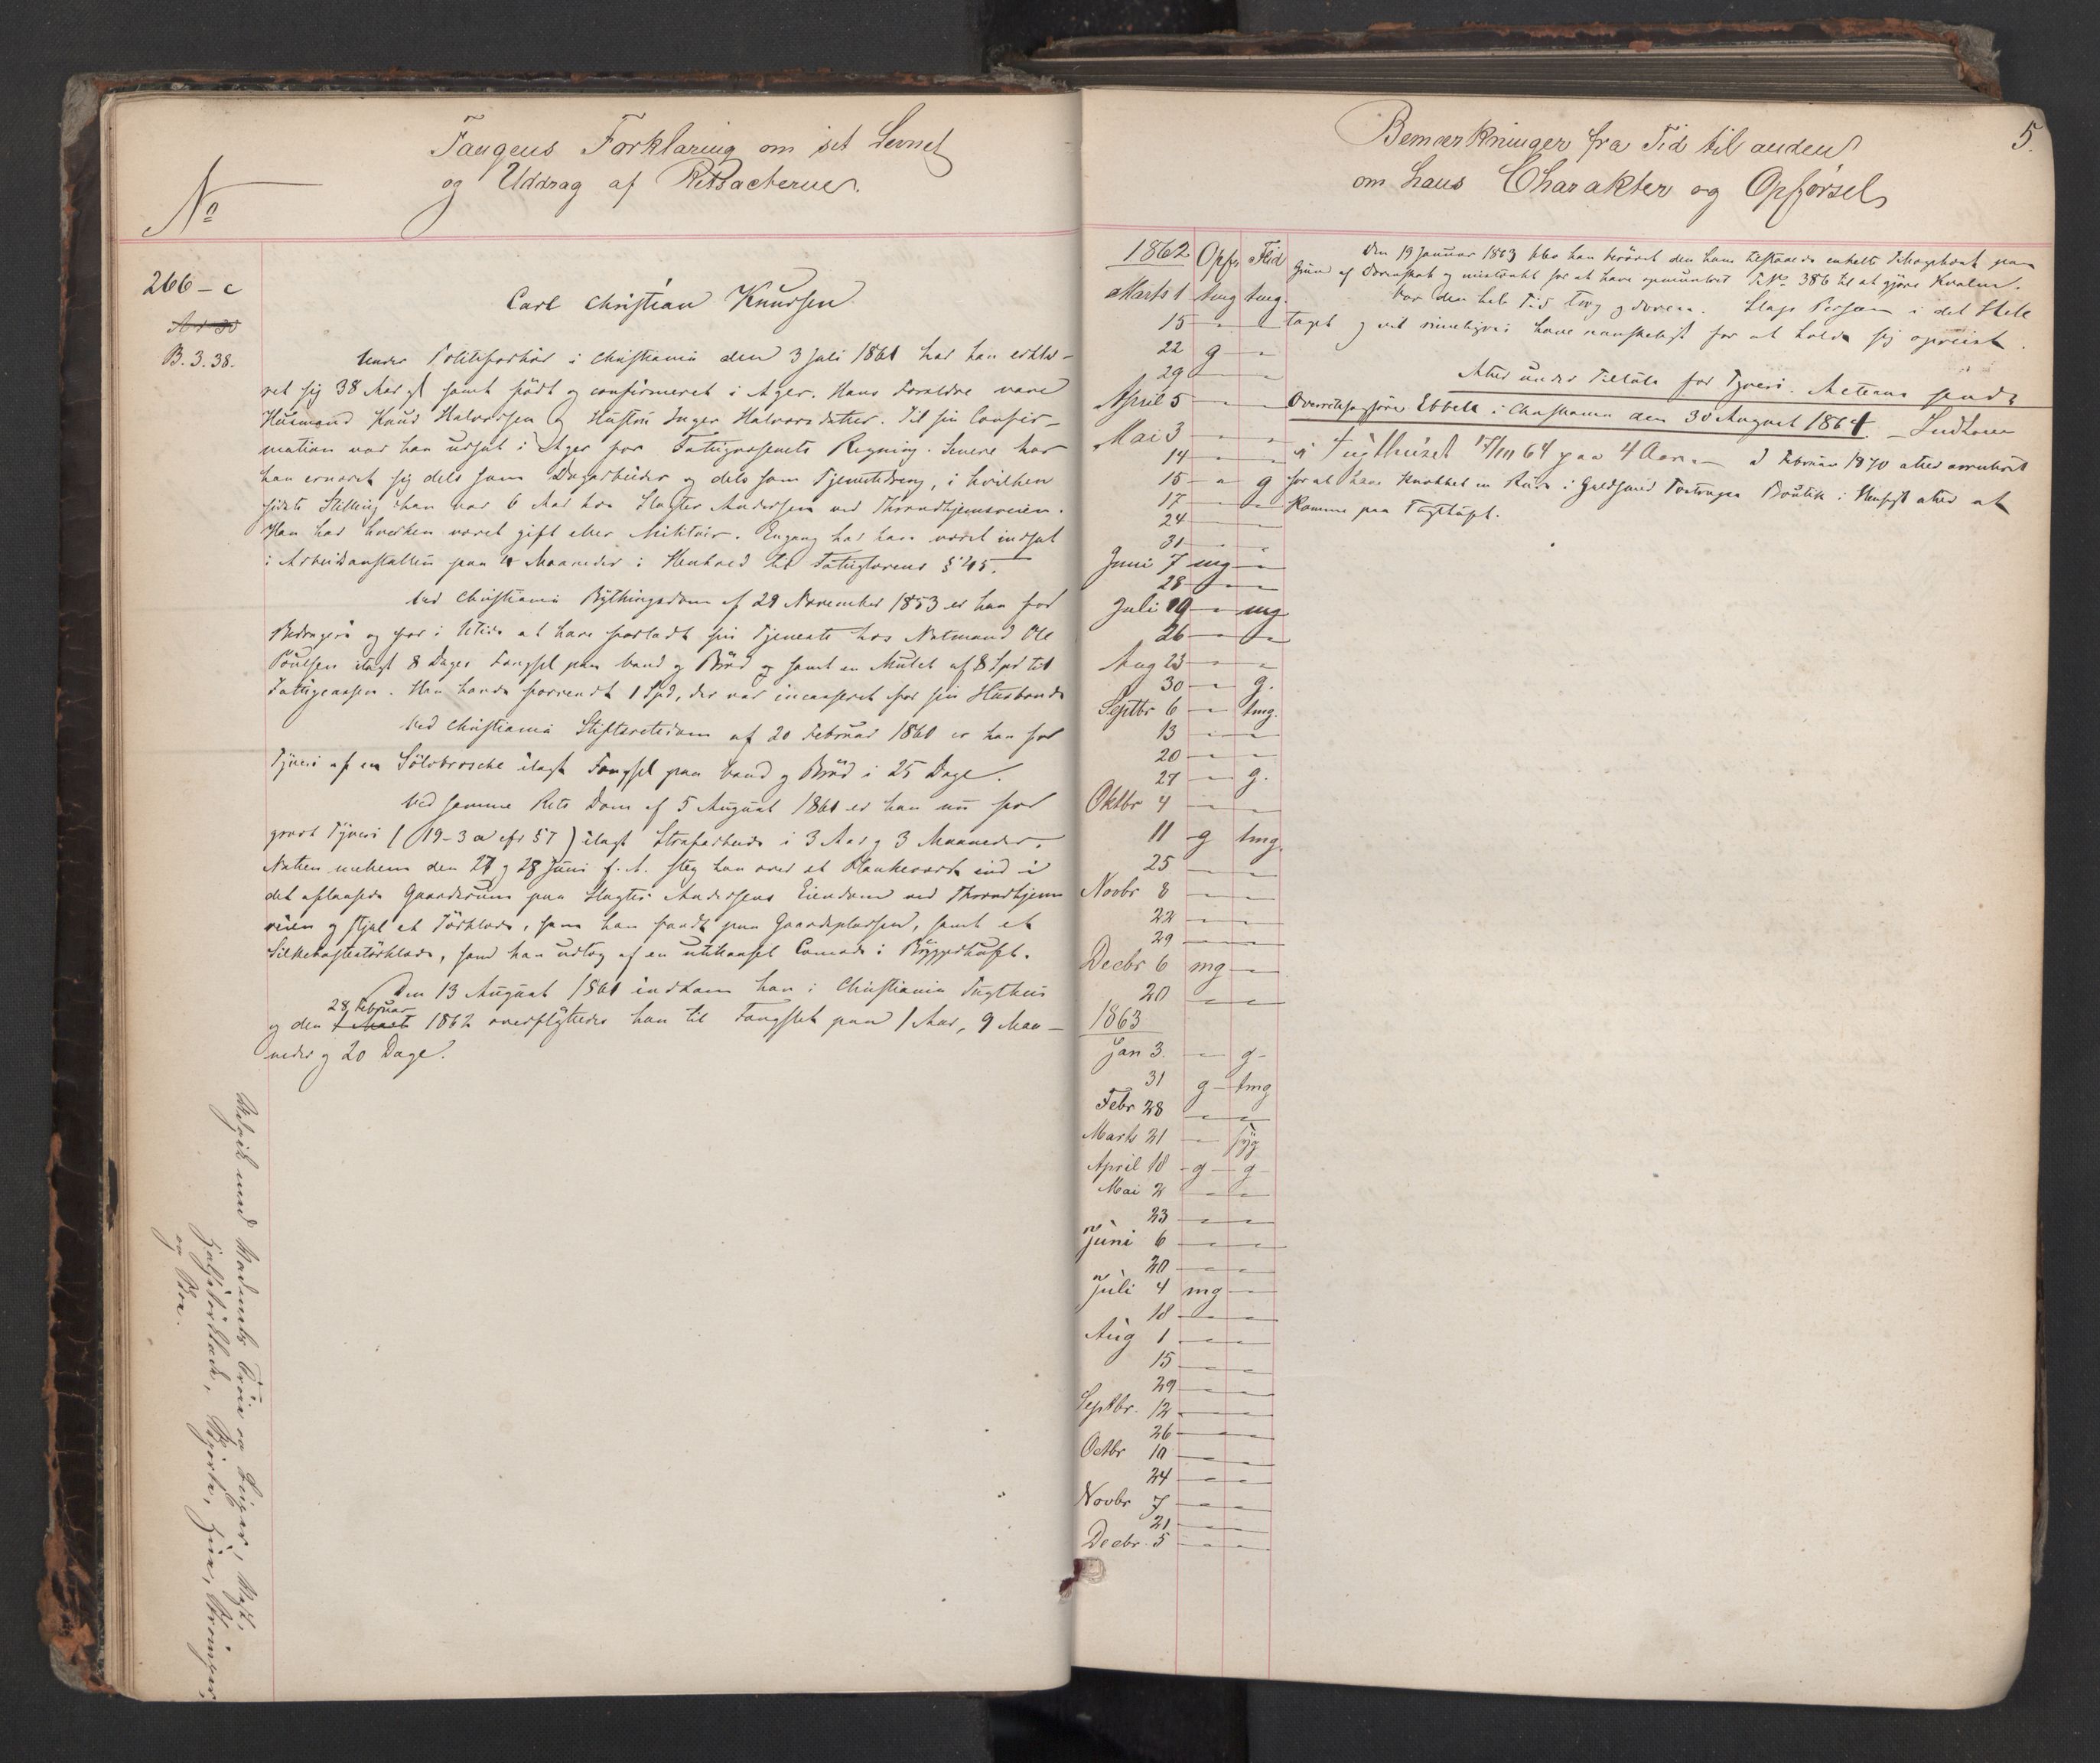 Fangens Forklaring om sit Levnet
og Uddrag af Retsacterne.
No
266-c
A 1 30
B. 3. 38.
Carl Christian Knudsen
Under Politiforhør i Christiania den 3 Juli 1861 har han erklæ-
ret sig 38 Aar gl samt født og confirmeret i Ager. Hans Forældre vare
Husmand Knud Halvorsen og Hustru Inger Halvorsdatter. Til sin Confir-
mation var han udsat i Ager for Fattigvæsenets Regning. Senere har
han ernæret sig dels som Dagarbeider og dels som Tjenestedreng, i hvilken
sidste Stilling han var 6 Aar hos Slagter Andersen ved Throndhjemsveien.
Han har hverken været gift eller Militær. Engang har han været indsat
i Arbeidsanstalten paa 4 Maaneder i Henhold til Fattiglovens § 45.
Ved Christiania Bythingsdom af 29 November 1853 er han for
Bedrageri og for i Utide at have forladt sin Tjeneste hos Natmand Ole
Poulsen ilagt 8 Dages Fængsel paa Vand og Brød og samt en Mulct af 8 Spd til
Fattigcassen. Han havde forvendt 1 Spd, der var incasseret for sin Husbonde
Ved Christiania Stiftsretsdom af 20 Februar 1860 er han for
Tyveri af en Sölvbrosche ilagt Fængsel paa Vand og Brød i 25 Dage.
Ved samme Rets Dom af 5 August 1861 er han nu for
grovt Tyveri (19-3 a cfr § 7) ilagt Strafarbeide i 3 Aar og 3 Maaneder.
Natten mellem den 27 og 28 Juni f. A. steg han over et Plankeværk ind i
det aflaasede Gaardsrum paa Slagter Andersens Eiendom ved Throndhjems
veien og stjal et Törklæde, som han fandt paa Gaardspladsen, samt et
Silkehalstörklæde, som han udtog af en Comode i Bryggerhuset.
Den 13 August 1861 indkom han i Christiania Tugthus
28 Februar
og den 1 Marts 1862 overflyttedes han til Fængslet paa 1 Aar, 9 Maa-
neder og 20 Dage.
og Sko.
Bemærkninger fra Tid til anden
om hans Charakter og Opførsel
5.
1862 Opfr Flid
Marts 1 tmg tmg.
15 - -
22 g -
29 - -
April 5 - -
Mai 3 - -
14 - -
15 - g
17 - -
24 - -
31 - -
Juni 7 mg -
28 - -
Juli 19 - mg
26 - -
Aug 23 - -
30 - g.
Septbr 6 - tmg.
13 - -
20 - -
27 - g.
Oktbr 4 - -
11 g tmg.
25 - -
Novbr 8 - -
22 - -
29 - -
Decbr 6 mg -
20 - -
1863
Jan 3. - g
31 g tmg
Febr 28 - -
Marts 21 - Syg
April 18 g g
Mai 2 - -
23 - -
Juni 6 - -
20 - -
Juli 4 mg -
18 - -
Aug 1 - -
15 - -
29 - -
Septbr. 12 - -
26 - -
Octbr 10 - -
24 - -
Novbr 7 - -
21 - -
Decbr 5 - -
Den 19 Januar 1863 blev han berövet den ham tilstaaede enkelte paa
Grund af Dovenskab og mistænkt for at have opmuntret F. No 386 til at gjøre Kvalm.
Var den hele Tid tvær og doven. Slap Person i det Hele
taget og vil rimeligvis have vanskeligt for at holde sig opreist.
Atter under Tiltale for Tyveri. Acterne sendt
Overretssagfører Ebbell i Christiania den 30 August 1864. Indkom
i Tugthuset 17/10 64 paa 4 Aar. I Februar 1870 atter arresteret
for at have knækket en Rude i Guldsmed Tostrups Boutik i Hensigt atter at
komme paa Tugthuset.